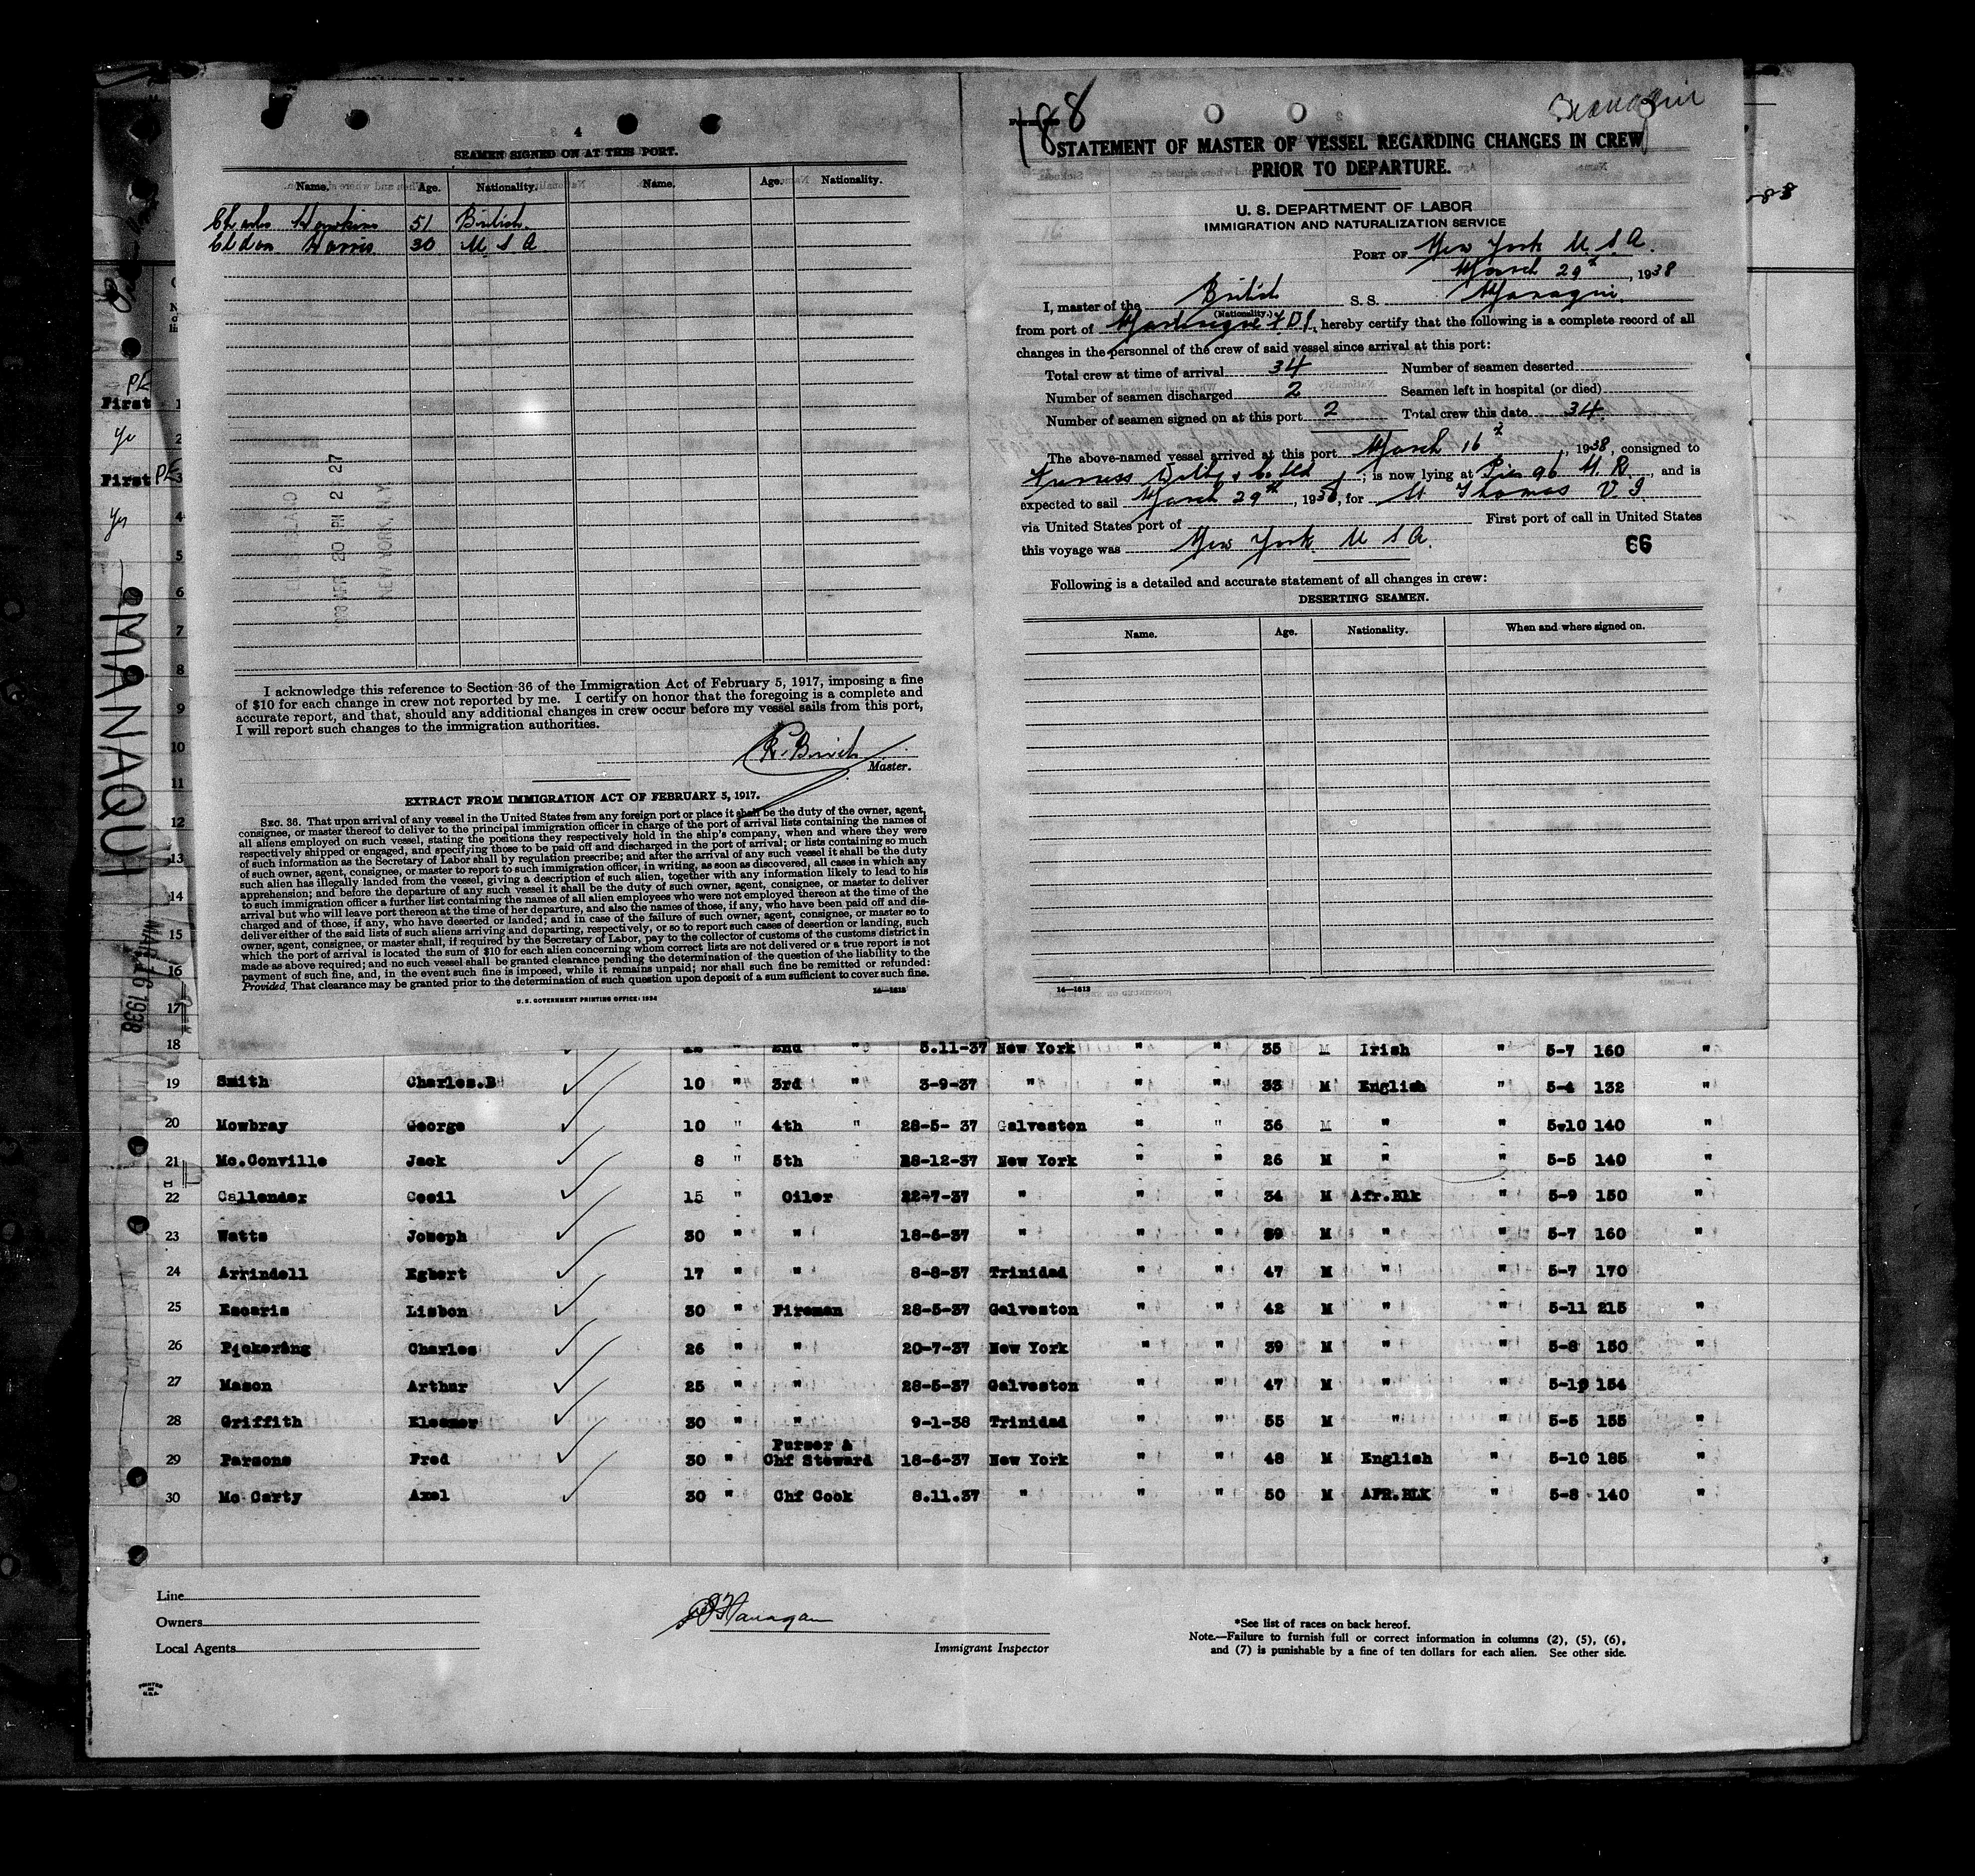 4
SEAMEN SIGNED ON AT THIS PORT.
Name. Age. Nationality. Name. Age. Nationality.
Charles Hawkins 51 British.
Eldon Harris 30 U S A
I acknowledge this reference to Section 36 of the Immigration Act of February 5, 1917, imposing a fine
of $10 for each change in crew not reported by me. I certify on honor that the foregoing is a complete and
accurate report, and that, should any additional changes in crew occur before my vessel sails from this port,
I will report such changes to the immigration authorities.
Master.
EXTRACT FROM IMMIGRATION ACT OF FEBRUARY 5, 1917.
SEC. 36. That upon arrival of any vessel in the United States from any foreign port or place it shall be the duty of the owner, agent,
consignee, or master thereof to deliver to the principal immigration officer in charge of the port of arrival lists containing the names of
all aliens employed on such vessel, stating the positions they respectively hold in the ship's company, when and where they were
respectively shipped or engaged, and specifying those to be paid off and discharged in the port of arrival; or lists containing so much
of such information as the Secretary of Labor shall by regulation prescribe; and after the arrival of any such vessel it shall be the duty
of such owner, agent, consignee, or master to report to such immigration officer, in writing, as soon as discovered, all cases in which any
such alien has illegally landed from the vessel, giving a description of such alien, together with any information likely to lead to his
apprehension; and before the departure of any such vessel it shall be the duty of such owner, agent, consignee, or master to deliver
to such immigration officer a further list containing the names of all alien employees who were not employed thereon at the time of the
arrival but who will leave port thereon at the time of her departure, and also the names of those, if any, who have been paid off and dis-
charged and of those, if any, who have deserted or landed; and in case of the failure of such owner, agent, consignee, or master so to
deliver either of the said lists of such aliens arriving and departing, respectively, or so to report such cases of desertion or landing, such
owner, agent, consignee, or master shall, if required by the Secretary of Labor, pay to the collector of customs of the customs district in
which the port of arrival is located the sum of $10 for each alien concerning whom correct lists are not delivered or a true report is not
made as above required; and no such vessel shall be granted clearance pending the determination of the question of the liability to the
payment of such fine, and, in the event such fine is imposed, while it remains unpaid; nor shall such fine be remitted or refunded:
Provided, That clearance may be granted prior to the determination of such question upon deposit of a sum sufficient to cover such fine.
U. S. GOVERNMENT PRINTING OFFICE: 1934 14—1613
188
STATEMENT OF MASTER OF VESSEL REGARDING CHANGES IN CREW
PRIOR TO DEPARTURE.
U. S. DEPARTMENT OF LABOR
IMMIGRATION AND NATURALIZATION SERVICE
PORT OF New York U S A.
March 29th, 1938
I, master of the British S. S. Manaqui
(Nationality.)
from port of Martinique F.W.I., hereby certify that the following is a complete record of all
changes in the personnel of the crew of said vessel since arrival at this port:
Total crew at time of arrival 34 Number of seamen deserted
Number of seamen discharged 2 Seamen left in hospital (or died)
Number of seamen signed on at this port 2 Total crew this date 34
The above-named vessel arrived at this port March 16th, 1938, consigned to
Furness Withy & Co. Ltd; is now lying at Pier 96 N. R., and is
expected to sail March 29th, 1938, for St Thomas V I
via United States port of First port of call in United States
this voyage was New York U S A. 66
Following is a detailed and accurate statement of all changes in crew:
DESERTING SEAMEN.
Name. Age. Nationality. When and where signed on.
14—1613
PE
First 1
2
First PE 3
Yes 4
5
6
7
8
9
10
11
12
13
14
15
16
17
MANAQUI
MAR 16 1938
18 2nd " 5.11-37 New York " " 35 M Irish " 5-7 160 "
19 Smith Charles.B 10 " 3rd " 3-9-37 " " " 33 M English " 5-4 132 "
20 Mowbray George 10 " 4th " 28-5- 37 Galveston " " 36 M " " 5-10 140 "
21 Mc.Conville Jack 8 " 5th " 28-12-37 New York " " 26 M " " 5-5 140 "
22 Callender Cecil 15 " Oiler 22-7-37 " " " 34 M Afr.Blk " 5-9 150 "
23 Watts Joseph 30 " " 18-6-37 " " " 59 M " " 5-7 160 "
24 Arrindell Egbert 17 " " 8-8-37 Trinidad " " 47 M " " 5-7 170
25 Escaris Lisbon 30 " Fireman 28-5-37 Galveston " " 42 M " " 5-11 215 "
26 Pickering Charles 26 " " 20-7-37 New York " " 39 M " " 5-8 150 "
27 Mason Arthur 25 " " 28-5-37 Galveston " " 47 M " " 5-10 154
28 Griffith Eleazer 30 " " 9-1-38 Trinidad " " 55 M " " 5-5 155 "
29 Parsons Fred 30 " Purser & Chf Steward 18-6-37 New York " " 48 M English " 5-10 185 "
30 Mc Carty Axel 30 " Chf Cook 8.11.37 " " " 50 M AFR.BLK " 5-8 140 "
Line
Owners
Local Agents
Immigrant Inspector
*See list of races on back hereof.
Note.—Failure to furnish full or correct information in columns (2), (5), (6),
and (7) is punishable by a fine of ten dollars for each alien. See other side.
PRINTED
IN
U.S.A.